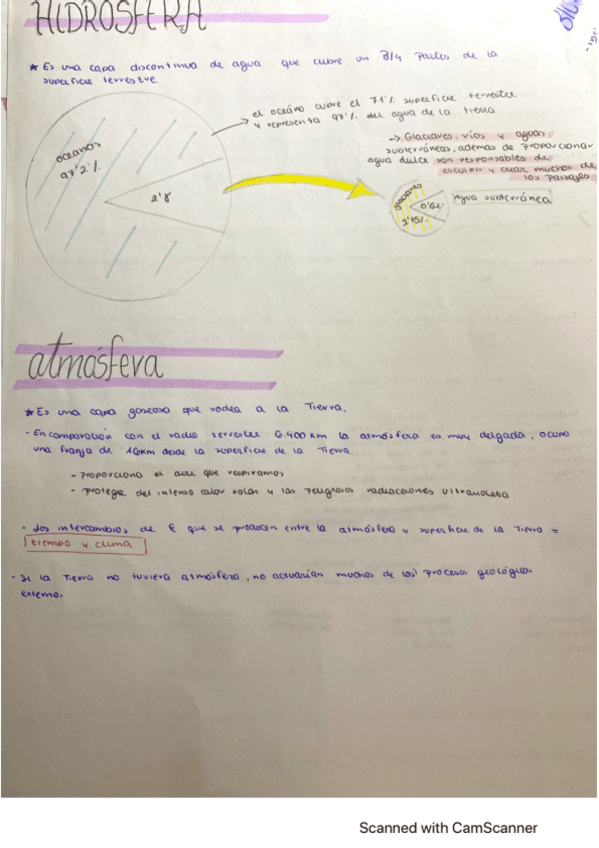 HIDROSFERA
* Es una capa discontinua de agua que cubre un 3/4 partes de la
superficie terrestre.
el océano cubre el 71% superficie terrestre
y representa 97% del agua de la tierra
océanos
97'2%
2'8
→ Glaciares, ríos y aguas
subterráneas, ademas de proporcionar
agua dulce son responsables de
esculpir y crear muchos de
los paisajes
glaciares
0'62
2'15%
Agua subterránea
atmósfera
* Es una capa gaseosa que rodea a la Tierra.
- En comparación con el radio terrestre 6.400 km la atmósfera es muy delgada, ocupa
una franja de 16km desde la superficie de la Tierra.
- proporciona el aire que respiramos
- protege del intenso calor solar y las peligrosas radiaciones ultravioleta
- Los intercambios de E que se producen entre la atmósfera y superficie de la Tierra =
tiempo y clima
- Si la Tierra no tuviera atmósfera, no actuarían muchos de los procesos geológicos
externo.
Scanned with CamScanner